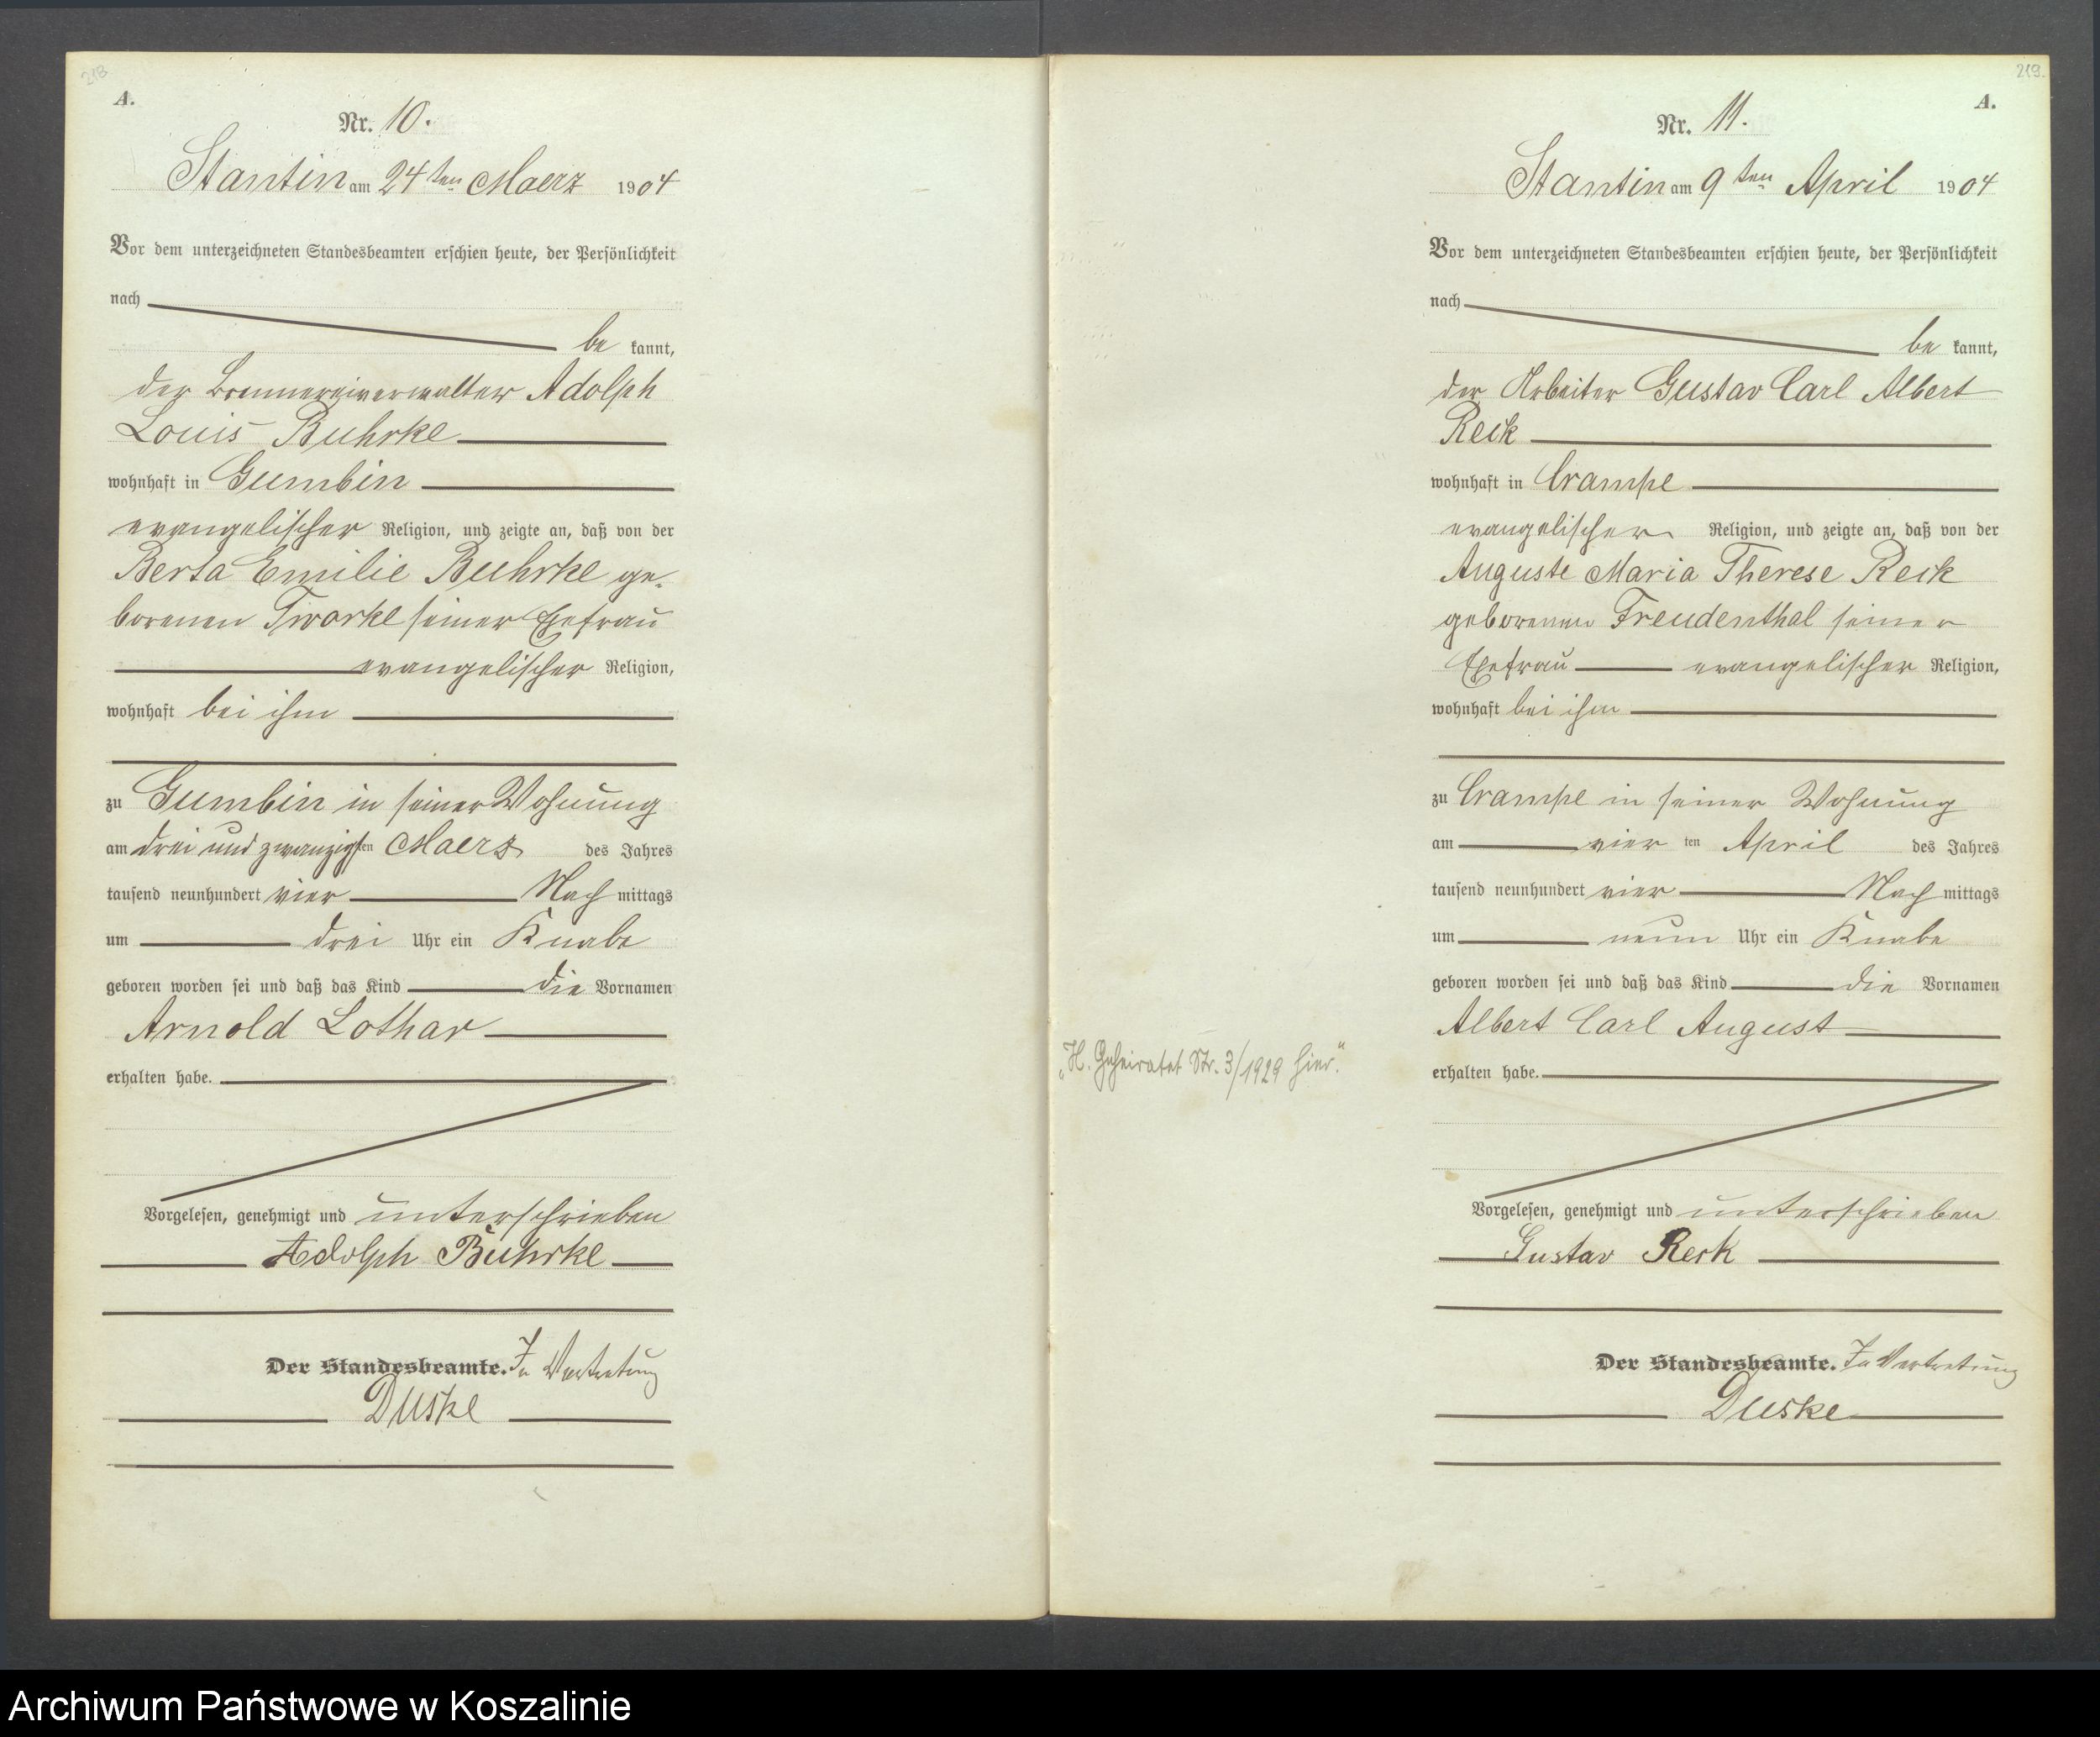 218
A.
Nr. 10.
Stantin am 24ten Maerz 1904
Vor dem unterzeichneten Standesbeamten erschien heute, der Persönlichkeit
nach
be kannt,
der Brennereiverwalter Adolph
Louis Buhrke
wohnhaft in Gumbin
evangelischer Religion, und zeigte an, daß von der
Berta Emilie Buhrke ge-
borenen Tworke seiner Ehefrau
evangelischer Religion,
wohnhaft bei ihm
zu Gumbin in seiner Wohnung
am drei und zwanzigsten Maerz des Jahres
tausend neunhundert vier Nach mittags
um drei Uhr ein Knabe
geboren worden sei und daß das Kind die Vornamen
Arnold Lothar
erhalten habe.
Vorgelesen, genehmigt und unterschrieben
Adolph Buhrke
Der Standesbeamte. In Vertretung
Duske
219.
A.
Nr. 11.
Stantin am 9ten April 1904
Vor dem unterzeichneten Standesbeamten erschien heute, der Persönlichkeit
nach
be kannt,
der Arbeiter Gustav Carl Albert
Reck
wohnhaft in Crampe
evangelischer Religion, und zeigte an, daß von der
Auguste Maria Therese Reck
geborenen Freudenthal seiner
Ehefrau evangelischer Religion,
wohnhaft bei ihm
zu Crampe in seiner Wohnung
am vier ten April des Jahres
tausend neunhundert vier Nach mittags
um neun Uhr ein Knabe
geboren worden sei und daß das Kind die Vornamen
Albert Carl August
erhalten habe.
„H. Geheiratet Str. 3/1929 hier."
Vorgelesen, genehmigt und unterschrieben
Gustav Reck
Der Standesbeamte. In Vertretung
Duske
Archiwum Państwowe w Koszalinie